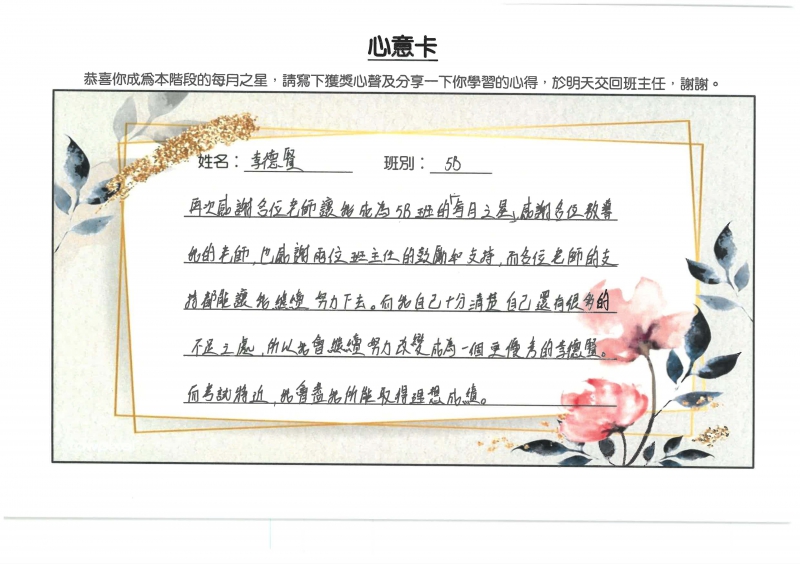 心意卡
恭喜你成為本階段的每月之星，請寫下獲獎心聲及分享一下你學習的心得，於明天交回班主任，謝謝。
姓名：李德賢 班別：5B
再次感謝各位老師讓我成為5B班的「每月之星」，感謝各位教導
我的老師，也感謝兩位班主任的鼓勵和支持，而各位老師的支
持都能讓我繼續努力下去。而我自己十分清楚自己還有很多的
不足之處，所以我會繼續努力改變成為一個更優秀的李德賢。
而考試將近，我會盡我所能取得理想成績。